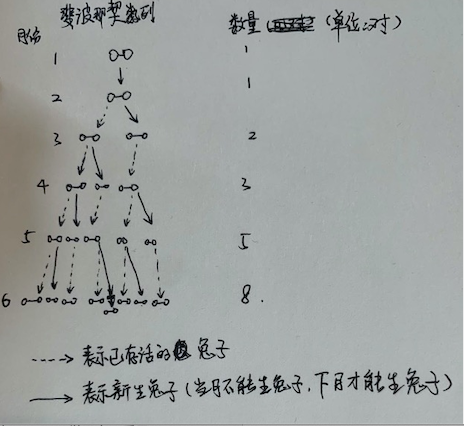 斐波那契数列
月份 数量 (单位:对)
1 1
2 1
3 2
4 3
5 5
6 8.
表示已存活的兔子
表示新生兔子(当月不能生兔子,下月才能生兔子)